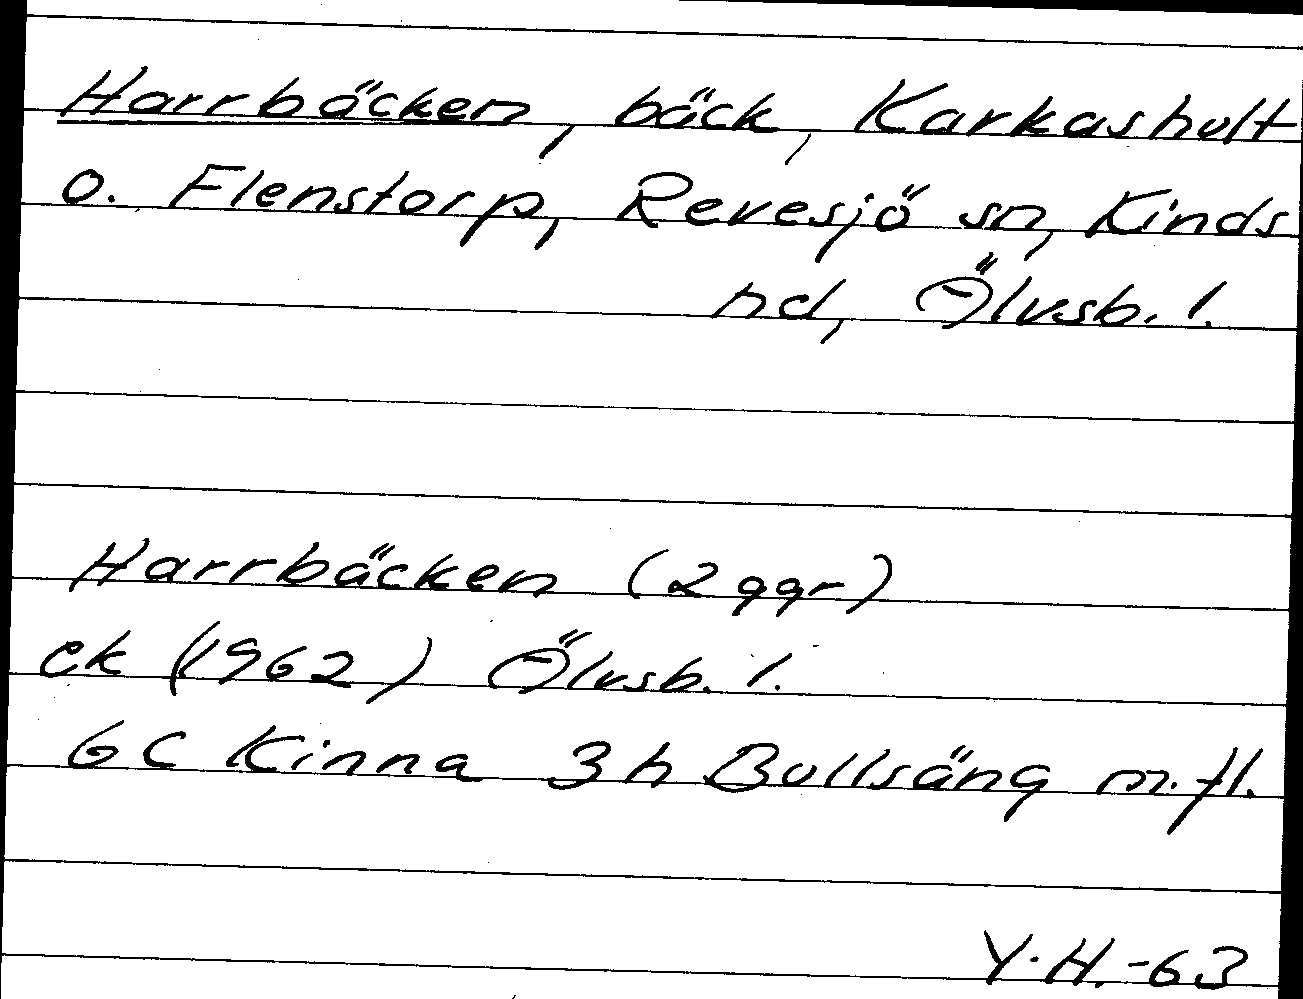 Harrbäcken, bäck, Karkashult
o. Flenstorp, Revesjö sn, Kinds
hd, Älvsb. l.
Harrbäcken (2 ggr)
ek (1962) Älvsb. l.
6 C Kinna 3 h Bollsäng m. fl.
Y. H. -63